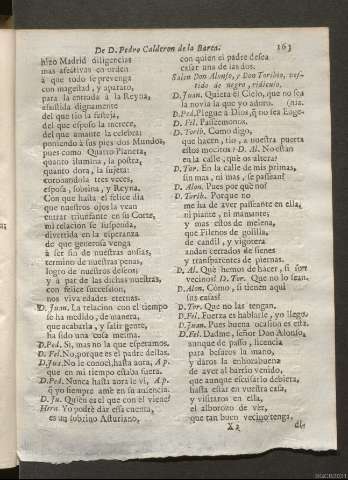 De D. Pedro Calderon de la Barca. 163
hizo Madrid diligencias
mas afectivas en orden
à que todo se prevenga
con magestad, y aparato,
para la entrada à la Reyna,
assistida dignamente
del que tio la festeja,
del que esposo la merece,
del que amante la celebra:
poniendo à sus pies dos Mundos,
pues como Quarto Planeta,
quanto ilumina, la postra,
quanto dora, la sujeta:
coronandola tres veces,
esposa, sobrina, y Reyna.
Con que hasta el felice dia
que nuestros ojos la vean
entrar triunfante en su Corte,
mi relacion se suspenda,
divertida en la esperanza
de que generosa venga
à ser fin de nuestras ansias,
termino de nuestras penas,
logro de nuestros deseos;
y à par de las dichas nuestras,
con felice succession,
nos viva edades eternas.
D. Juan. La relacion con el tiempo
se ha medido, de manera,
que acabarla, y salir gente,
ha sido una cosa mesma.
D. Ped. Si, mas no la que esperamos.
D. Fel. No, porque es el padre dellas.
D. Jua. No le conocì, hasta aora, Ap.
que en mi tiempo estaba fuera.
D. Ped. Nunca hasta aora le vi, Ap.
q̃ yo siempre amè en su ausencia.
D. Ju. Quièn es el que con èl viene?
Hern. Yo podrè dar essa cuenta,
es un sobrino Asturiano,
con quien el padre desea
casar una de las dos.
Salen Don Alonso, y Don Toribio, ves-
tido de negro, ridiculo.
D. Juan. Quiera el Cielo, que no sea
la novia la que yo adoro.
D. Ped. Plegue à Dios, q̃ no sea
D. Fel. Passeemonos.
D. Torib. Como digo,
què hacen, tio, à nuestra puerta
estos mocitos? D. Al. No estan
en la calle, què os altera?
D. Tor. En la calle de mis primas,
sin mas, ni mas, se passean?
D. Alon. Pues por què no?
D. Torib. Porque no
me ha de aver passeante en ella,
ni piante, ni mamante;
y mas estos de melena,
que Filenos de golilla,
de candil, y vigotera
andan cerrados de sienes
y transparentes de piernas.
D. Al. Què hemos de hacer, si son
vecinos? D. Tor. Que no lo sean.
D. Alon. Còmo, si tienen aqui
sus casas?
D. Tor. Que no las tengan.
D. Fel. Fuerza es hablarle, yo llego.
D. Juan. Pues buena ocasion es esta.
D. Fel. Dadme, señor Don Alonso,
aunque de passo, licencia
para besaros la mano,
y daros la enhorabuena
de aver al barrio venido,
que aunque escusarlo debiera,
hasta estar en vuestra casa,
y visitaros en ella,
el alborozo de ver,
que tan buen vecino tenga,
X 2